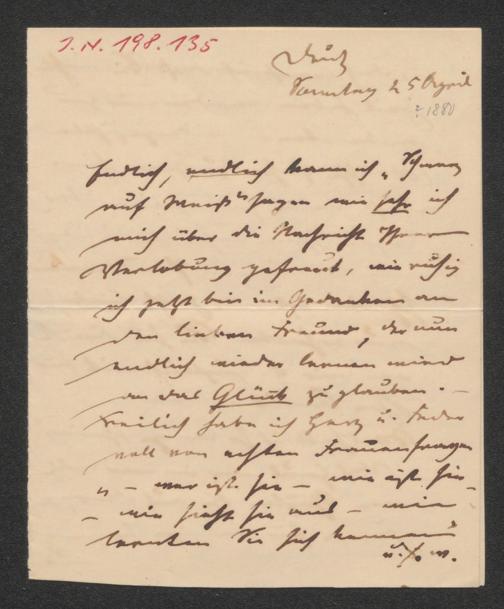 I. N. 198.135
Sonntag d. 25 April
? 1880
Endlich, endlich kann ich „Schwarz
auf Weiß“ sagen wie sehr ich
mich über die Nachricht Ihrer
Verlobung gefreut, wie ruhig
ich jetzt bin im Gedanken an
den lieben Freund, der nun
endlich wieder lernen wird
an das Glück zu glauben. –
Freilich habe ich Herz u. Feder
voll von echten Frauenfragen
„ – wer ist sie – wie ist sie,
– wie sieht sie aus – wie
lernten Sie sich kennen“
u. s. w.